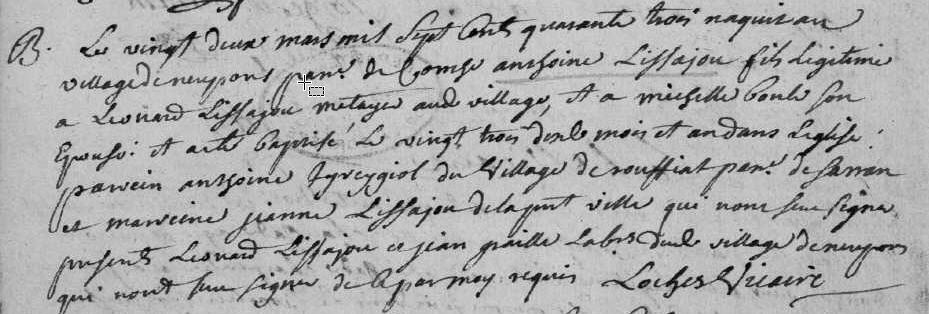 B. Le vingt deux mars mil sept cents quarante trois naquit au
village de neupons parr. de Corrèse anthoine Lissajou fils légitime
a Leonard Lissajou metayer aud village, et a michelle boule son
Epouse: et a eté baptisé Le vingt trois desd mois et an dans Leglise.
parrein anthoine du Village de rouffiat parr. de Sarran
et marreine jeanne Lissajou de la pnt ville qui nont seu signer
presents Leonard Lissajou et jean graille Labrs dud village de neupons
qui nont seu signer de ce par moy requis Loches Vicaire